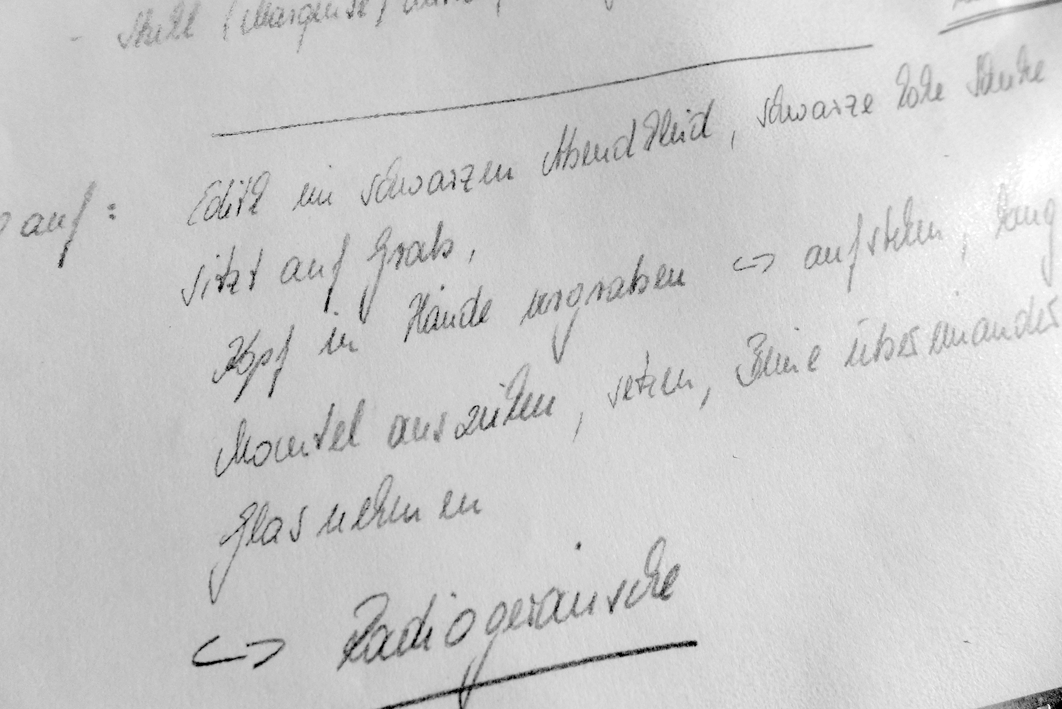 - Stuhl (Marquise)
auf: Edith im schwarzen Abendkleid, schwarze hohe Schuhe
sitzt auf Grab,
Kopf in Hände vergraben ↪ aufstehen, lang
Mantel ausziehen, setzen, Beine übereinander
Glas nehmen
↪ Radiogeräusche